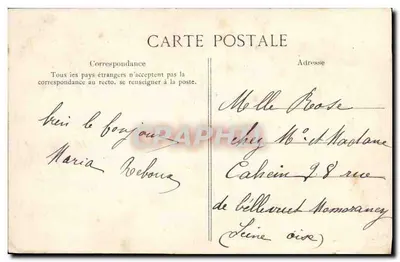 CARTE POSTALE
Correspondance
Tous les pays étrangers n'acceptent pas la
correspondance au recto, se renseigner à la poste.
Adresse
bien le bonjour
Maria Reboux
Melle Rose
chez Mr et Madame
28 rue
de bellevue
(Seine oise)
CPARHAMA